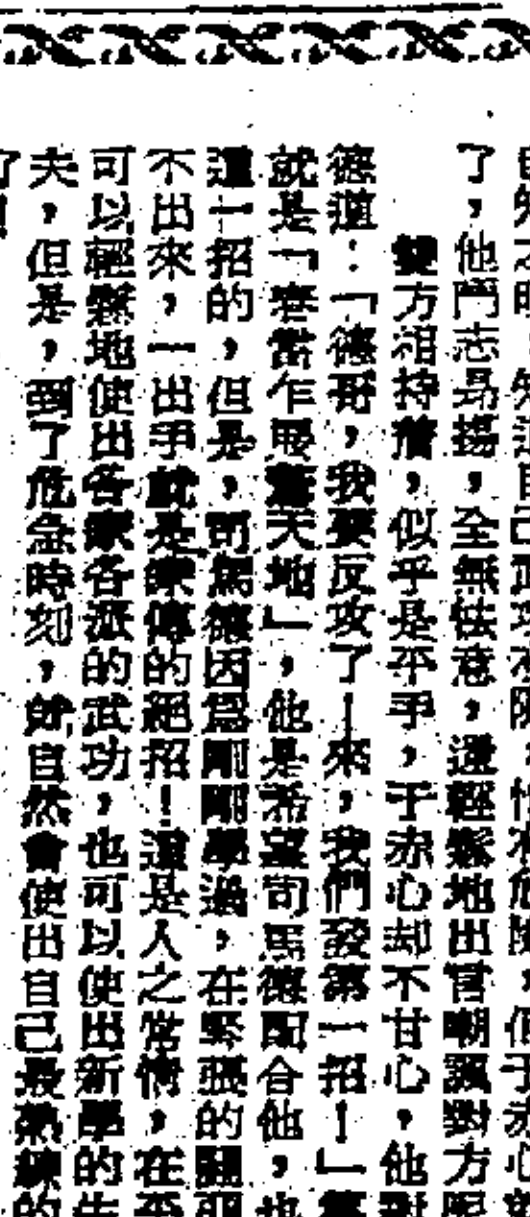 了，他鬥志昂揚，全無怯意，還輕鬆地出言嘲諷對方呢
雙方相持着，似乎是平手，于赤心却不甘心，他對
德道：「德哥，我要反攻了！來，我們發第一招！」
就是「春雷乍展驚天地」，他是希望司馬德配合他，也
這一招的，但是，司馬德因爲剛剛學過，在緊張的
不出來，一出手就是家傳的絕招！這是人之常情，在平
可以輕鬆地使出各家各派的武功，也可以使出新學的
夫，但是，到了危急時刻，就自然會使出自己最熟練的